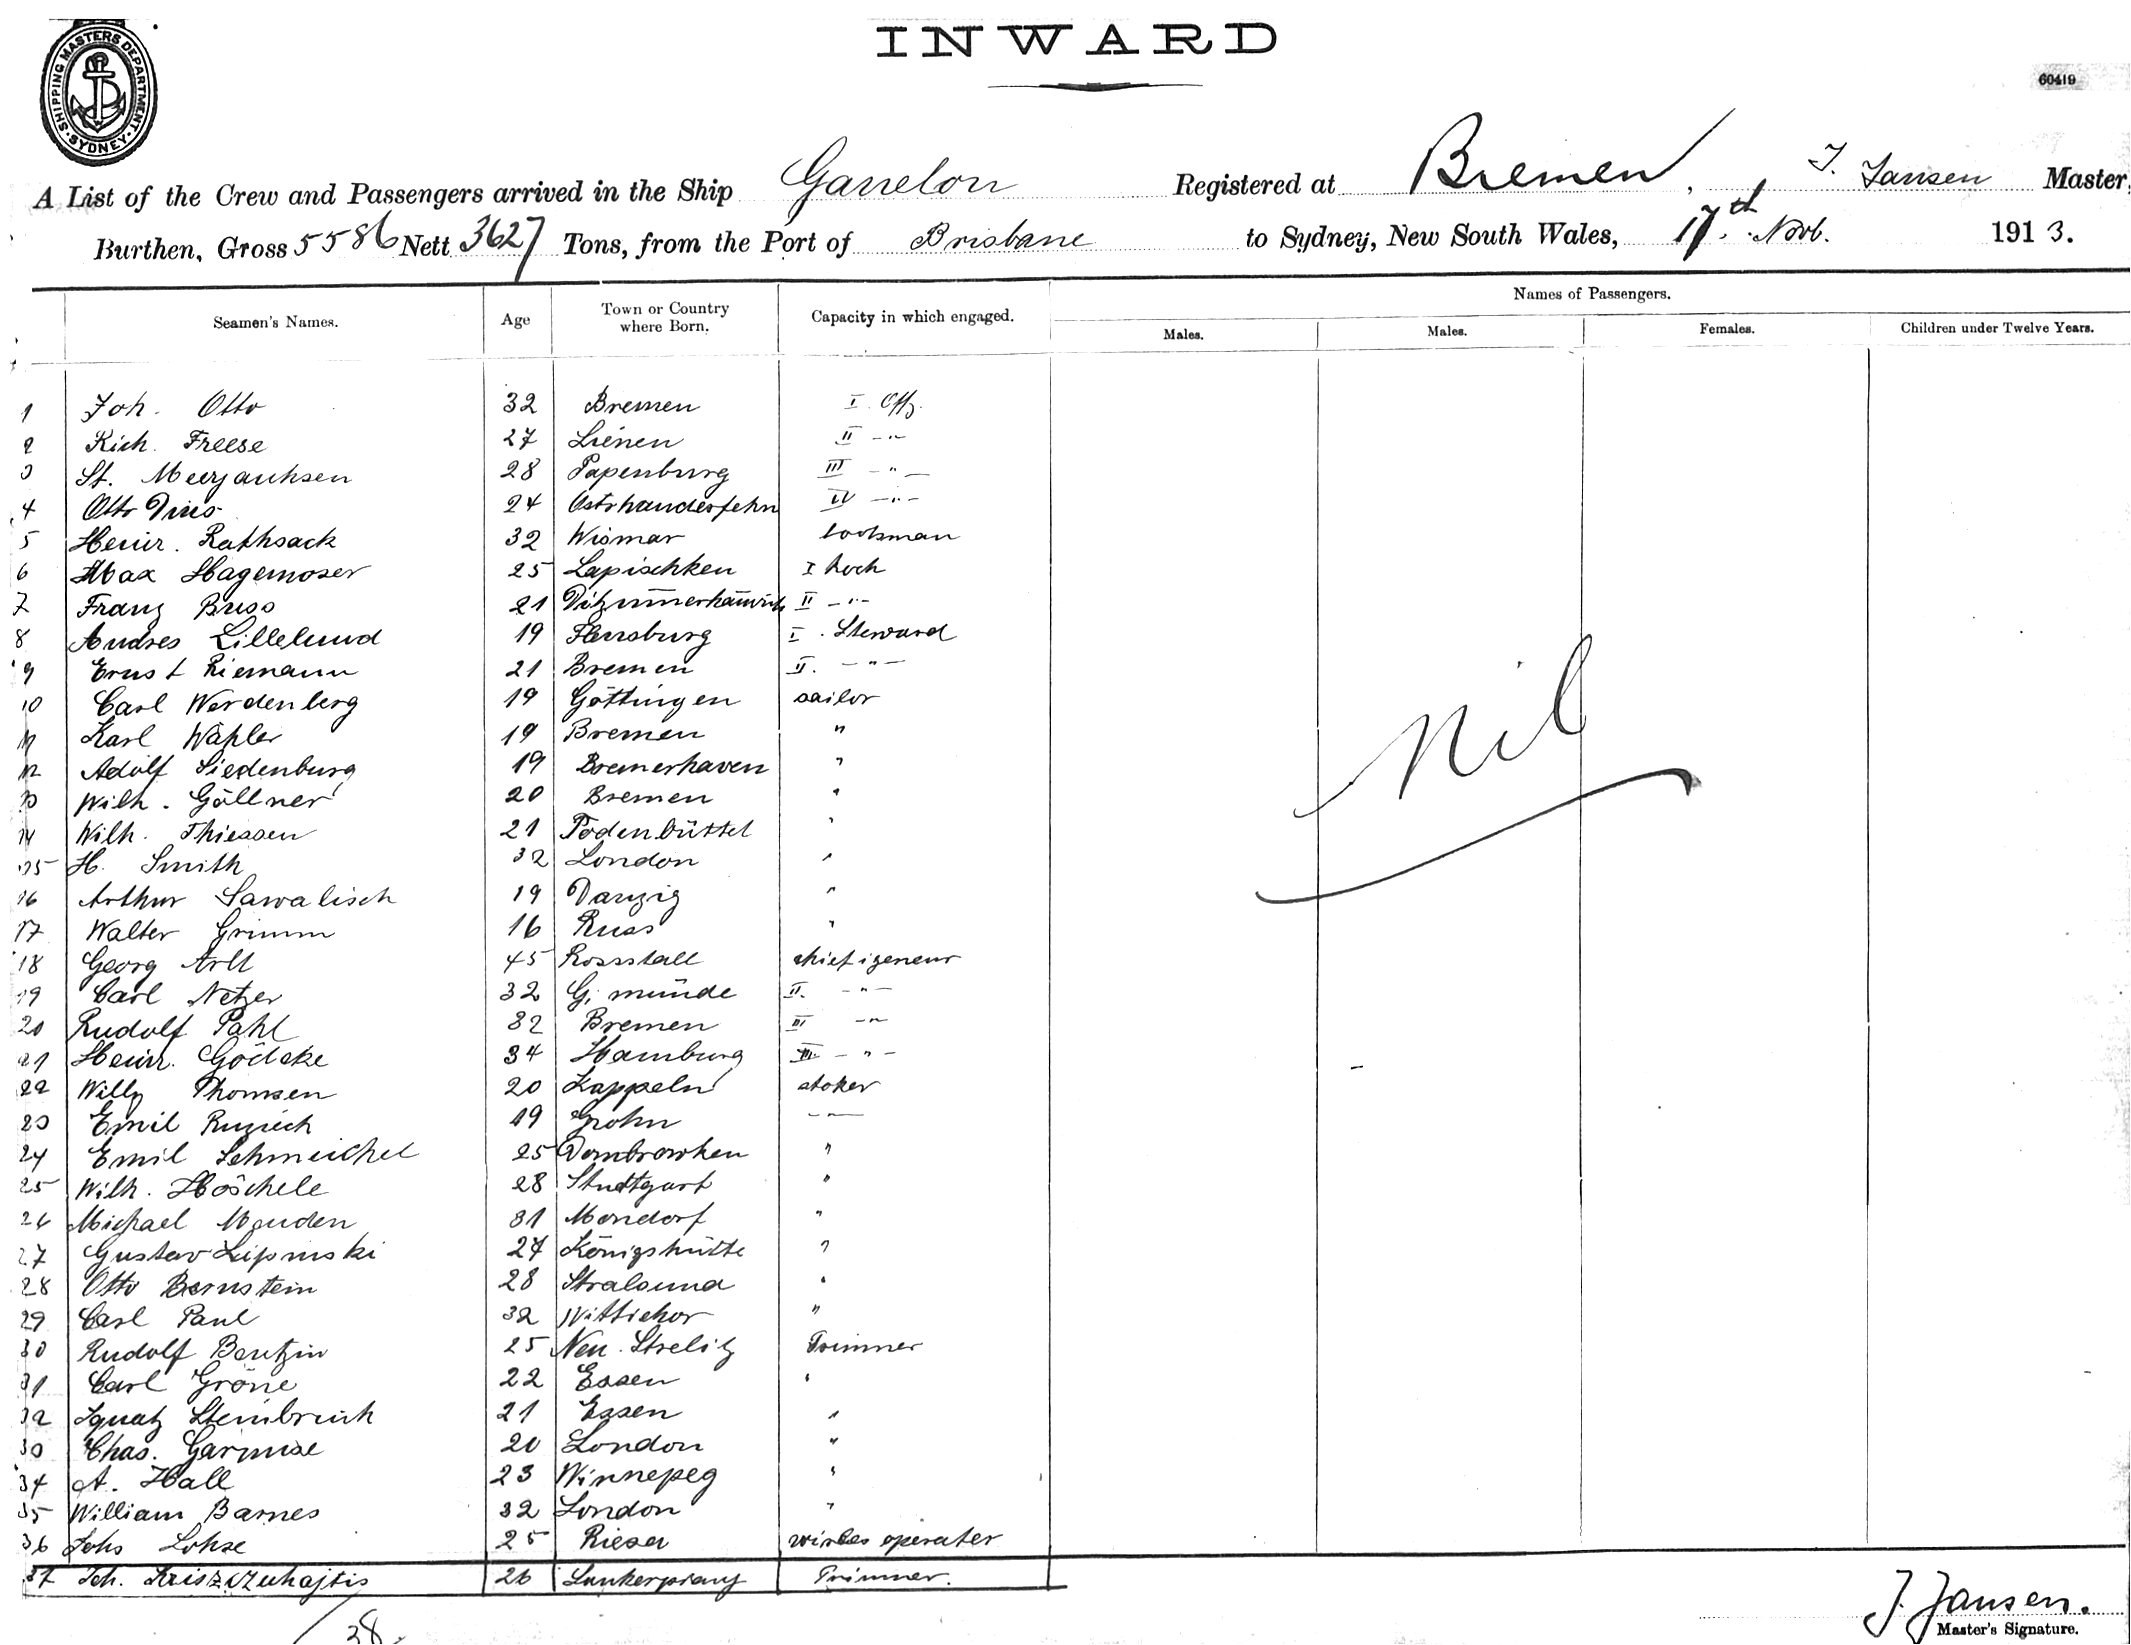 INWARD
SHIPPING MASTERS DEPARTMENT · SYDNEY ·
60419
A List of the Crew and Passengers arrived in the Ship Ganelon Registered at Bremen, J. Jansen Master,
Burthen, Gross 5586 Nett 3627 Tons, from the Port of Brisbane to Sydney, New South Wales, 17th Nov. 1913.
Seamen's Names. Age Town or Country where Born. Capacity in which engaged. Names of Passengers.
Males. Males. Females. Children under Twelve Years.
1 Joh. Otto 32 Bremen I Off.
2 Rich. Freese 27 Lienen II -"-
3 St. Meerjanksen 28 Papenburg III -"-
4 Otto 24 Ostrhauderfehn IV -"-
5 Heinr. Rathsack 32 Wismar bootsman
6 Max Hagemoser 25 Lapischken I koch
7 Franz Buss 21 II -"-
8 Andres Lillelund 19 Flensburg I. Steward
9 Ernst Riemann 21 Bremen II. -"-
10 Carl Werdenberg 19 Göttingen sailor
11 Karl Wähler 19 Bremen "
12 Adolf Siedenburg 19 Bremerhaven "
13 Wilh. Göllner 20 Bremen "
14 Wilh. Thiessen 21 Todenbüttel "
15 H. Smith 32 London "
16 Arthur Sawalisch 19 Danzig "
17 Walter Grimm 16 Russ "
18 Georg Arlt 45 Rossstall chief igeneur
19 Carl Netzer 32 G. münde II. -"-
20 Rudolf Pahl 32 Bremen III -"-
21 Heinr. Gödeke 34 Hamburg III. -"-
22 Willy Thomsen 20 Kappeln stoker
23 Emil Ruzieck 19 Grohn -"-
24 Emil Schmeichel 25 Dombrowken "
25 Wilh. Höschele 28 Stuttgart "
26 Michael Mouden 31 Mondorf "
27 Gustav Lipinski 27 Königshütte "
28 Otto Bernstein 28 Stralsund "
29 Carl Paul 32 Wittichor "
30 Rudolf Bentzin 25 Neu. Strelitz Trimmer
31 Carl Gröne 22 Essen "
32 Ignatz Steinbrink 21 Essen "
33 Chas. 20 London "
34 A. Hall 23 Winnepeg "
35 William Barnes 32 London "
36 Johs Lohse 25 Riesa wirles operater
37 Joh. Kriszczuhajtis 26 Trimmer.
38.
Nil
J. Jansen.
Master's Signature.